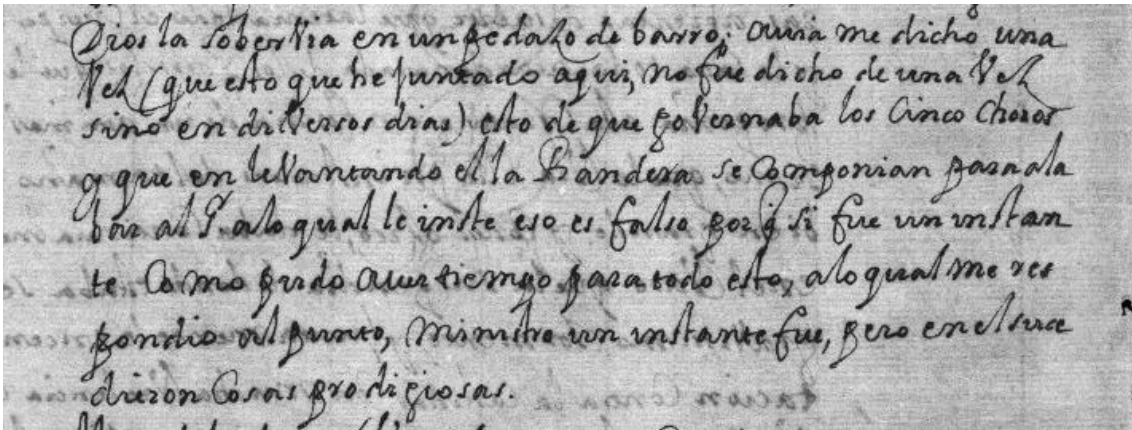 Dios la soberVia en un pedaso de barro. avia me dicho una
Vez (que esto que he juntado aqui, no fue dicho de una Vez
sino en diVersos dias) esto de que goVernaba los Cinco Choros
y que en leVantando ella Bandera se Componian para ala
bar al Sr. a lo qual le inste eso es falso porq si fue un instan
te Como pudo aver tiempo para todo esto, a lo qual me res
pondio al punto, Ministro un instante fue, pero en el suce
dieron Cosas prodigiosas.